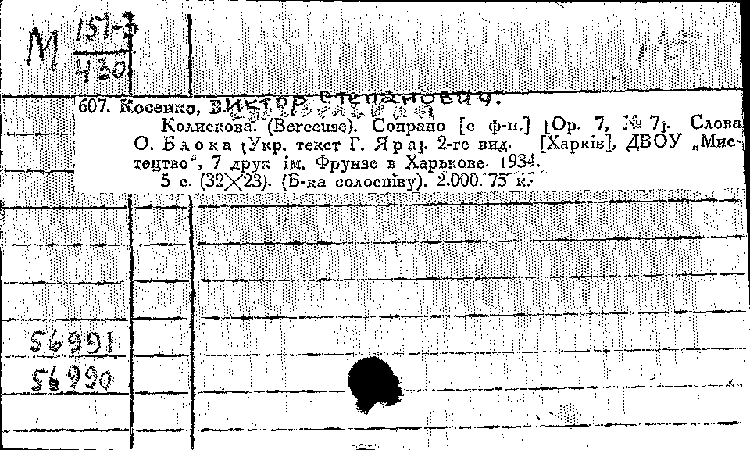 М 151-3
430
607. Косенко, Виктор Степанович.
Колискова. (Berceuse). Сопрано [с ф-п.] [Op. 7, № 7]. Слова
О. Блока [Укр. текст Г. Яра]. 2-ге вид. [Харків], ДВОУ „Мис-
тецтво", 7 друк ім. Фрунзе в Харькове. 1934.
5 с. (32×23). (Б-ка солоспіву). 2.000. 75 к.
56991
56990